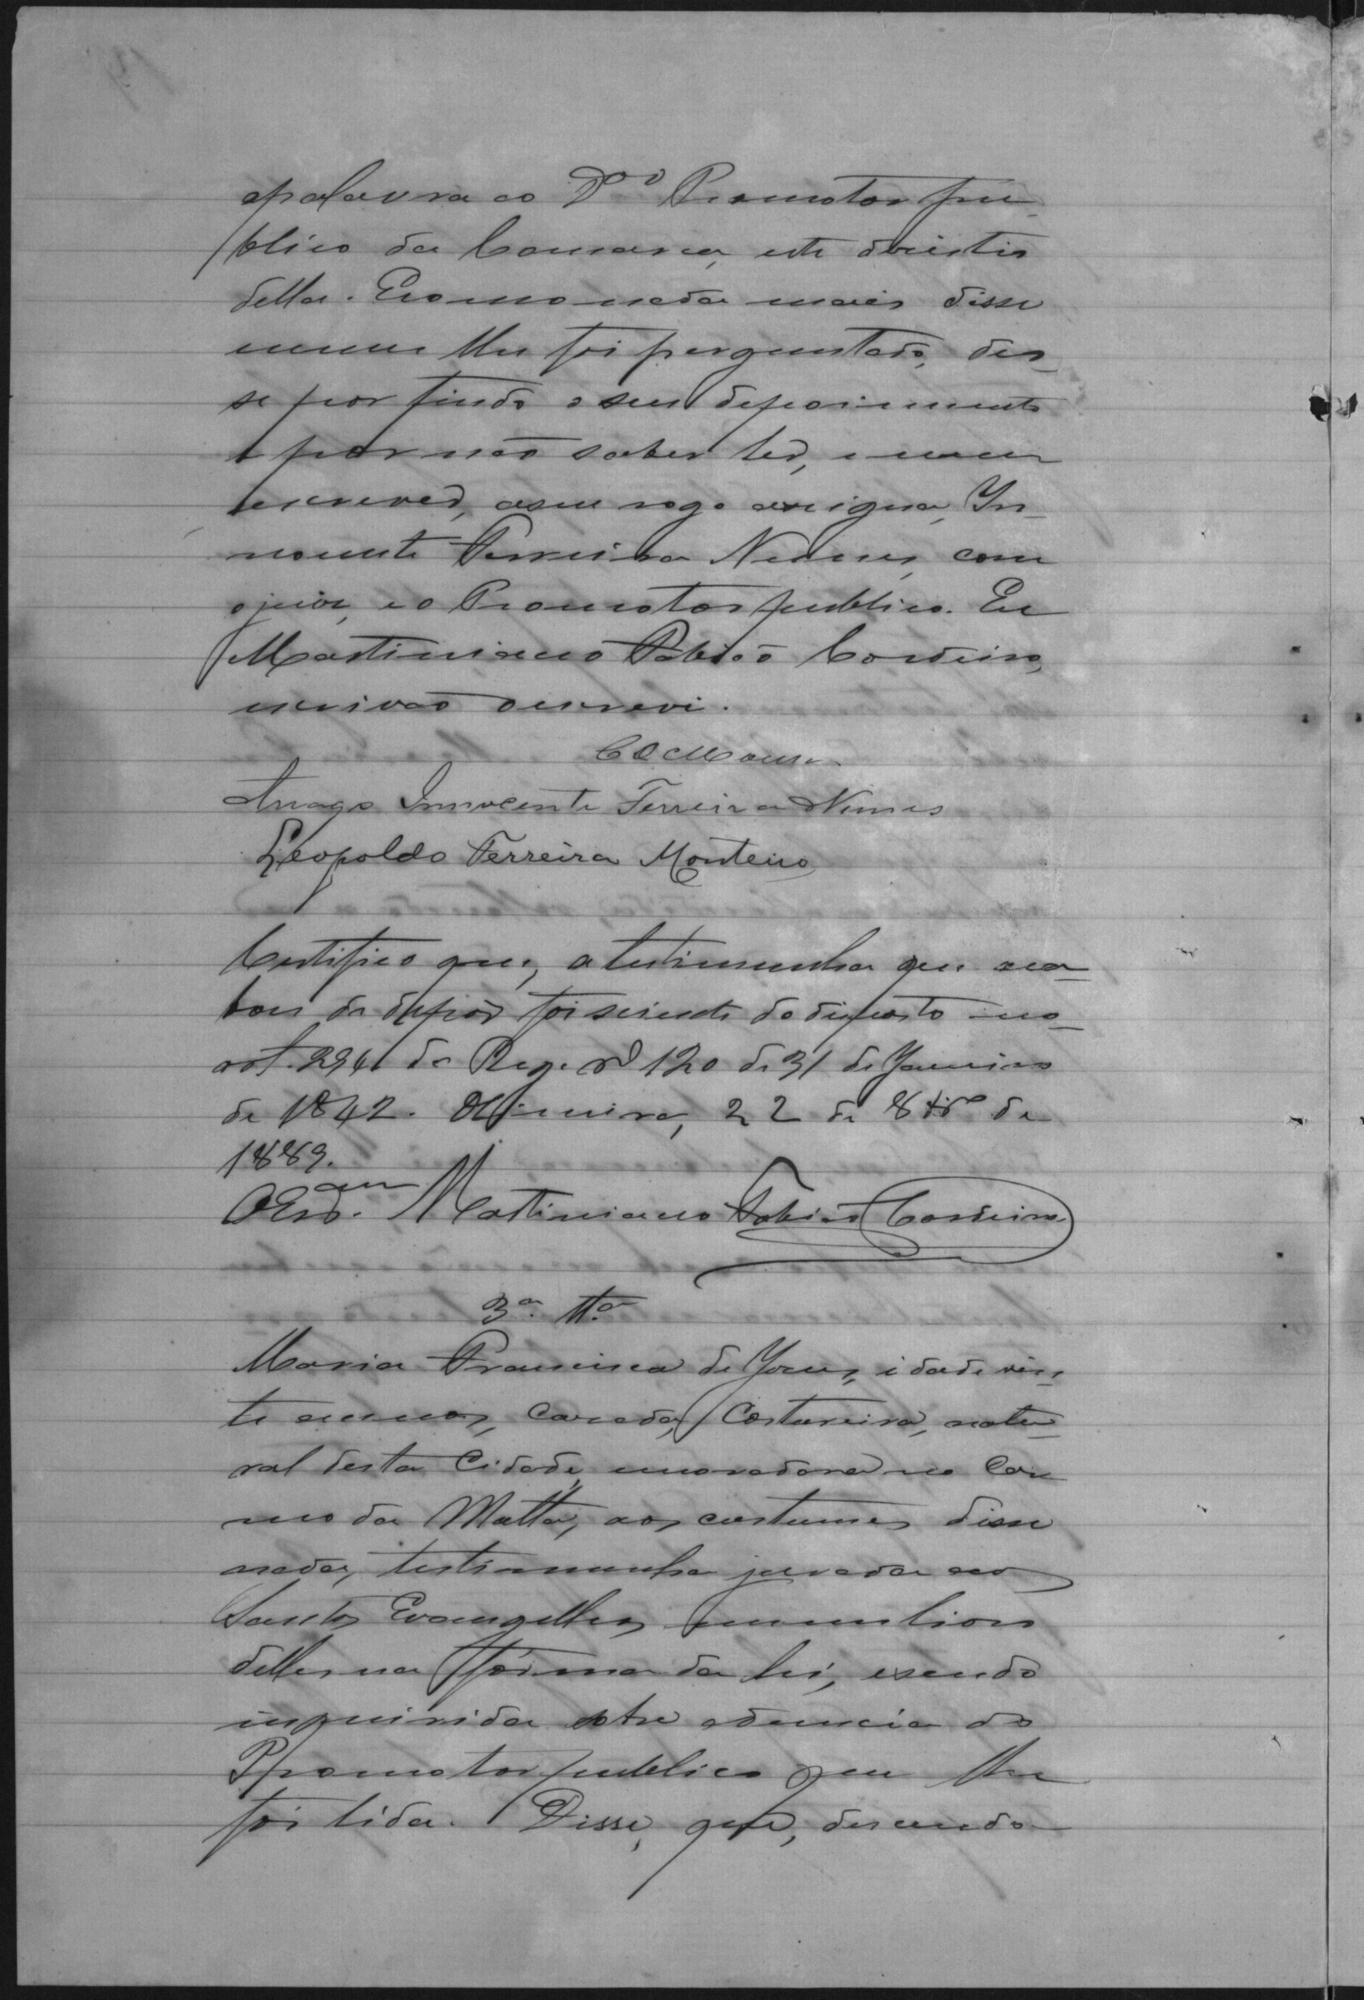 apalavra ao Dor Promotor pu-
blico da Comarca, este desistio
della. E como nada mais disse
nem lhe foi perguntado, deu-
se por findo o seu depoimento
e por não saber ler, e nem
escrever, a seu rogo assigna, In-
nocente Ferreira Nunes, com
o juiz, e o Promotor publico. Eu
Martiniano Fabião Cordeiro,
escrivão o escrevi.
Arrogo Innocente Ferreira Nunes
Leopoldo Ferreira Monteiro
Certifico que, a testimunha que aca-
bou de depor foi sciente do disposto no
art. 294 do Reg. nº 120 de 31 de Janeiro
de 1842. 22 de 8brº de
1889.
O Esam. Martiniano Fabião Cordeiro
3ª. Ttª
Maria Francisca de Jesus, idade vin-
te annos, casada, Costureira, natu-
ral desta Cidade, moradora no Car-
mo da Matta, aos costumes disse
nada, testimunha jurada aos
Santos Evangelhos, em um livro
delles na fórma da lei, e sendo
inquirida sobre a denuncia do
Promotor publico que lhe
foi lida. Disse, que,